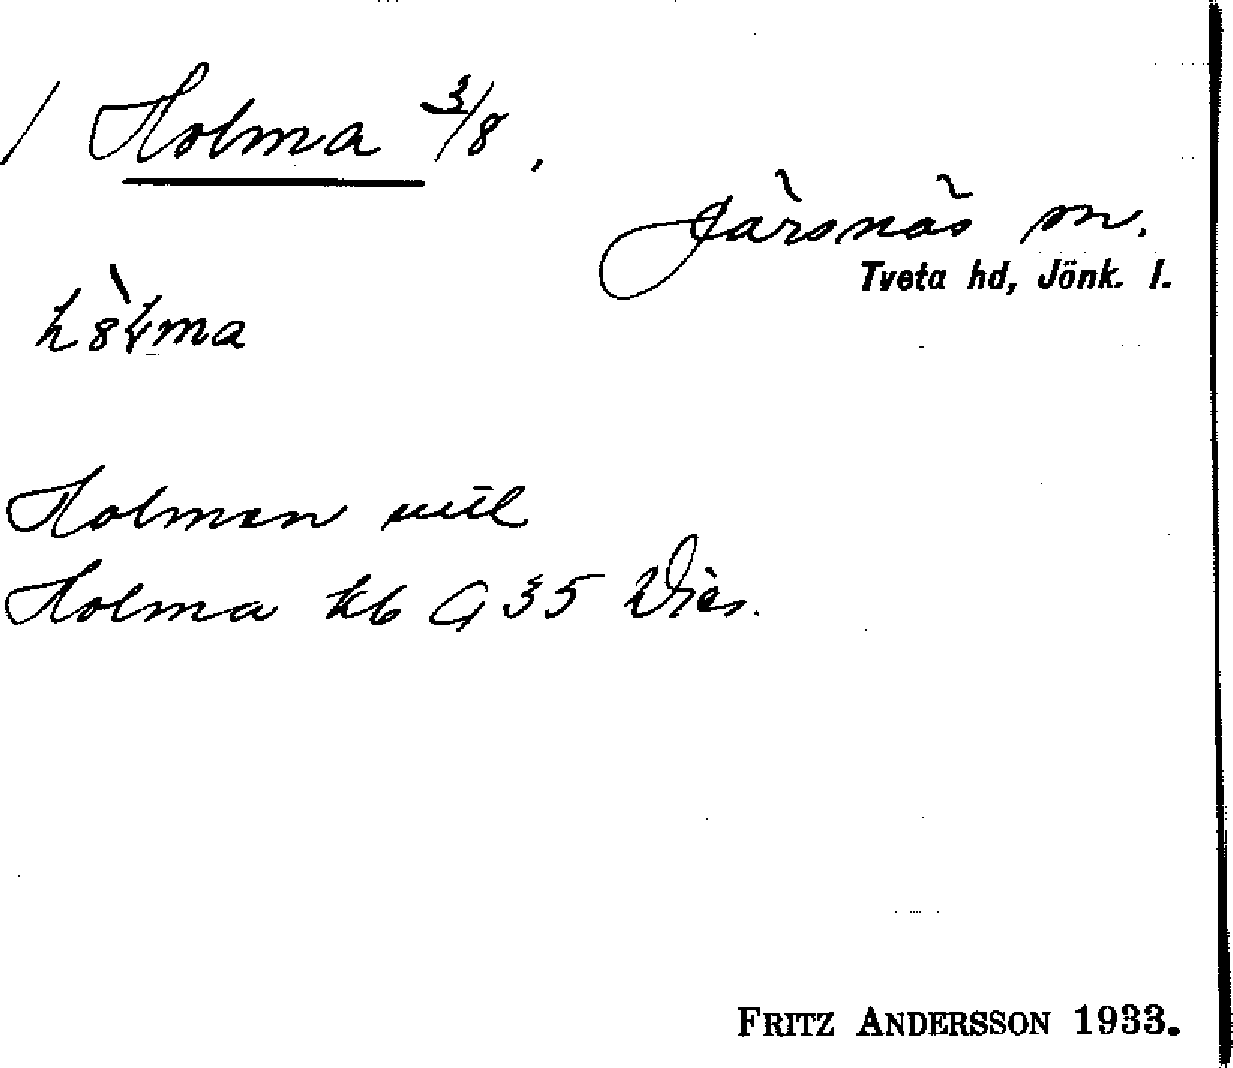 / Holma 3/8.
Järsnäs sn.
Tveta hd, Jönk. l.
Holman
Holma kb G 35
FRITZ ANDERSSON 1933.